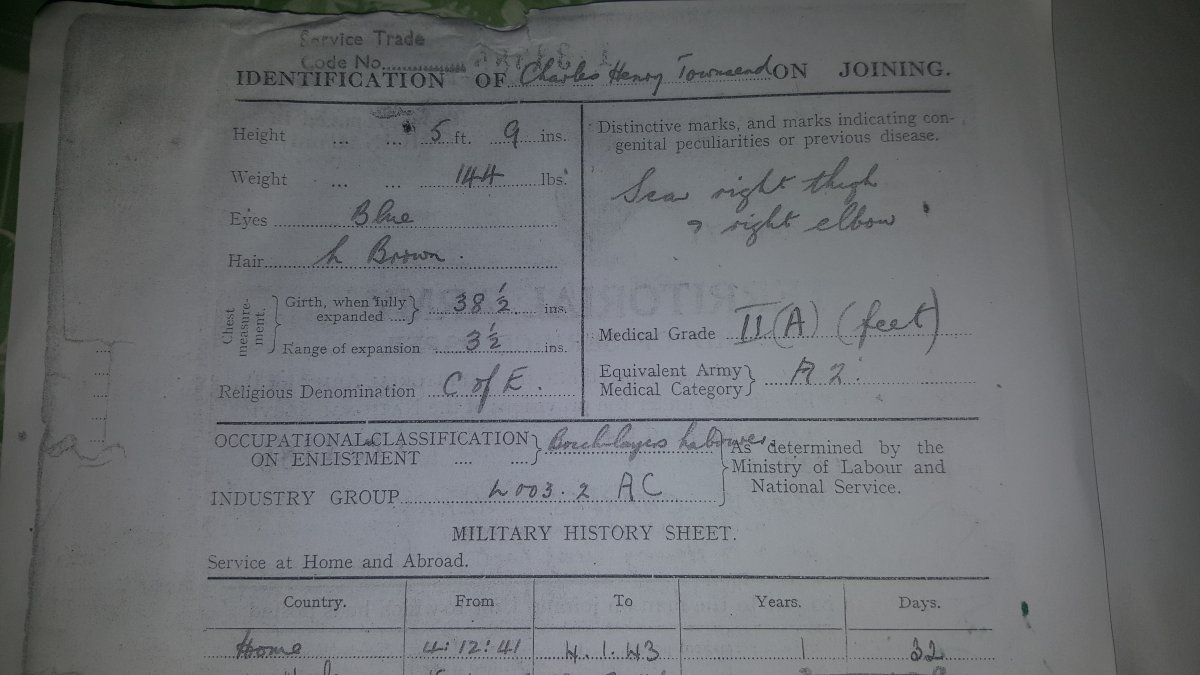 Service Trade
Code No.
IDENTIFICATION OF Charles Henry Townsend ON JOINING.
Height ... ... 5 ft. 9 ins.
Weight ... ... 144 lbs.
Eyes Blue
Hair L Brown.
Chest measure-ment.
Girth, when fully expanded .... } 38 ½ ins.
Range of expansion 3 ½ ins.
Religious Denomination C of E.
Distinctive marks, and marks indicating con-
genital peculiarities or previous disease.
Scar right thigh
& right elbow
Medical Grade II (A) (feet)
Equivalent Army
Medical Category } A 2.
OCCUPATIONAL CLASSIFICATION
ON ENLISTMENT .... .... } Bricklayers Labourer
INDUSTRY GROUP L003.2 AC
As determined by the
Ministry of Labour and
National Service.
MILITARY HISTORY SHEET.
Service at Home and Abroad.
Country. From To Years. Days.
Home 4:12:41 4.1.43 1 32